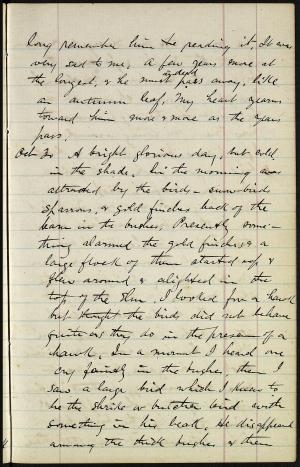 long remember him & reading it. It was
very sad to me. A few years more at
the longest, & he must indeed pass away, like
an autumn leaf. My heart yearns
toward him more & more as the years
pass.
Oct 30. A bright glorious day, but cold
in the shade. In the morning was
attracted by the birds – snow birds
sparrows, & gold finches back of the
barn in the bushes. Presently some-
thing alarmed the gold finches & a
large flock of them started up &
flew around & alighted in the
top of the elm. I looked for a hawk
but thought the birds did not behave
quite as they do in the presence of a
hawk. In a moment I heard one
cry faintly in the bushes, then I
saw a large bird which I knew to
be the shrike or butcher bird with
something in his beak. He disappeared
among the thick bushes & then